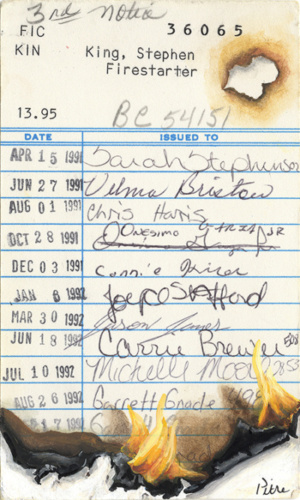 3rd notice
FIC 36065
KIN King, Stephen
Firestarter
13.95 BC 54151
DATE ISSUED TO
APR 15 1991 Sarah Stephenson
JUN 27 1991 Velma Bristow
AUG 01 1991 Chris Harris
OCT 28 1991 Onesimo JR
DEC 03 1991 Connie
JAN 8 1992 Joe Stafford
MAR 30 1992 Jason James
JUN 18 1992 Carrie Brewer
JUL 10 1992 Michelle Moore
AUG 26 1992 Garrett
17 1992